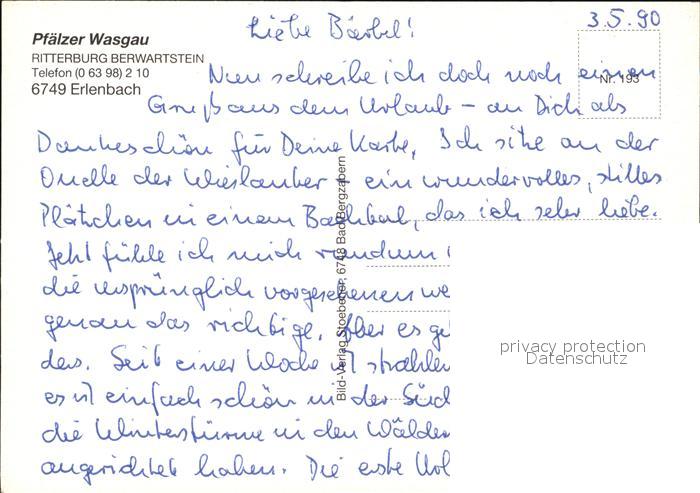 3.5.90
Liebe Bärbel!
Pfälzer Wasgau
RITTERBURG BERWARTSTEIN
Telefon (0 63 98) 2 10
6749 Erlenbach
Nr. 193
Nun schreibe ich doch noch einen
Gruß aus dem Urlaub – an Dich als
Dankeschön für Deine Karte. Ich sitze an der
Quelle der Wieslauter – ein wundervolles, stilles
Plätzchen in einem Bachtal, das ich sehr liebe.
Jetzt fühle ich mich rundum
die ursprünglich vorgesehenen we
genau das richtige. Aber es ge
ders. Seit einer Woche ist strahlen
es ist einfach schön in der Süd
die Winterstürme in den Wälder
angerichtet haben. Die erste Url
Bild-Verlag Stoebener, 6748 Bad Bergzabern
privacy protection
Datenschutz